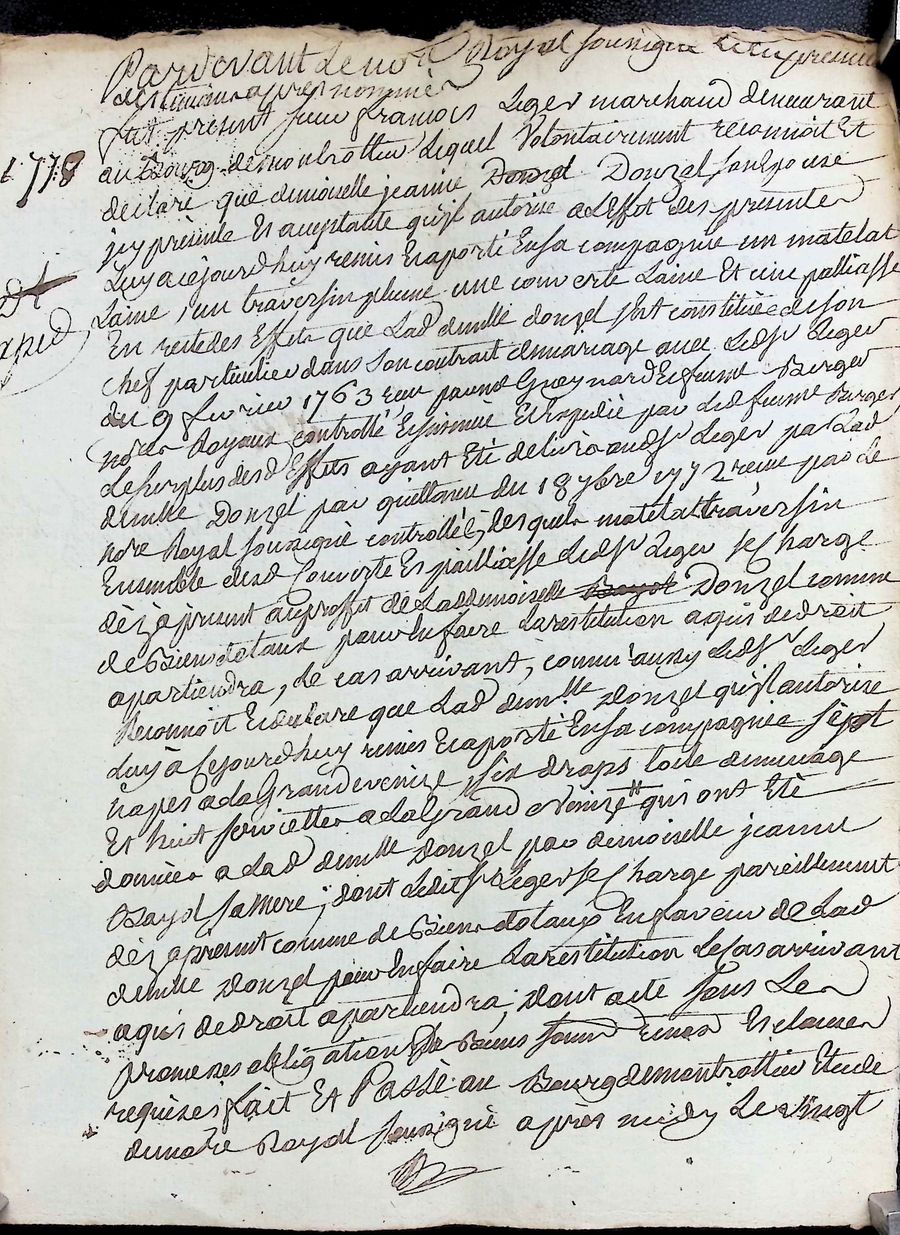 Pardevant Le nore Royal soussigné Et en presence
des temoins apres nommés
fut present sieur francois Leger marchand demeurant
1778
au Bourg de montrottier Lequel Volontairement reconnoit Et
declare que demoiselle jeanne Donzel Donzel son Epouse
jcy presente Et aceptante qu'jl autorise a L'effet des presentes
Luy a cejourd'huy remis Et aporté En sa compagnie un matelat
Laine, un traversin plume une couverte Laine Et une palliasse
En reste des Effets que Lad demlle donzel s'est constituée de son
chef particulier dans son contrat de mariage avec Led sr Leger
du 9 fevrier 1763 recu par me Et Berger
nores Royaux controllé Et insinué Et Expedié par led Berger
Le surplus desd Effets ayant Eté délivré aud sr Leger par Lad
demlle Donzel par quittance du 18 7bre 1772 recue par Le
nore Royal soussigné controllée, desquels matelat traversin
Ensemble desd Couverte Et pailliasse Led sr Leger se Charge
déz a present au proffit de Lad demoiselle Bayol Donzel comme
de Biens dotaux pour En faire La restitution a qui de droit
apartiendra, Le cas arrivant, comm'aussy Led sr Leger
Reconnoit Et declare que Lad demlle Donzel qu'jl autorise
Luy a Cejourd'huy remis Et aporté En sa compagnie sept
napes a la Grand venize, six draps toile de menage
Et huit serviettes a la Grand Venize qui ont Eté
données a Lad demlle Donzel par demoiselle jeanne
Bayol sa mere; dont Ledit sr Leger se Charge pareillement
déz a present comme de Biens dotaux En faveur de Lad
demlle Donzel pour En faire La restitution Le cas arrivant
a qui de droit apartiendra; dont acte sous Les
promesses obligation de Biens soumises renon Et clauses
requises fait Et Passé au Bourg de montrottier Etude
de notre Royal soussigné après midy Le vingt